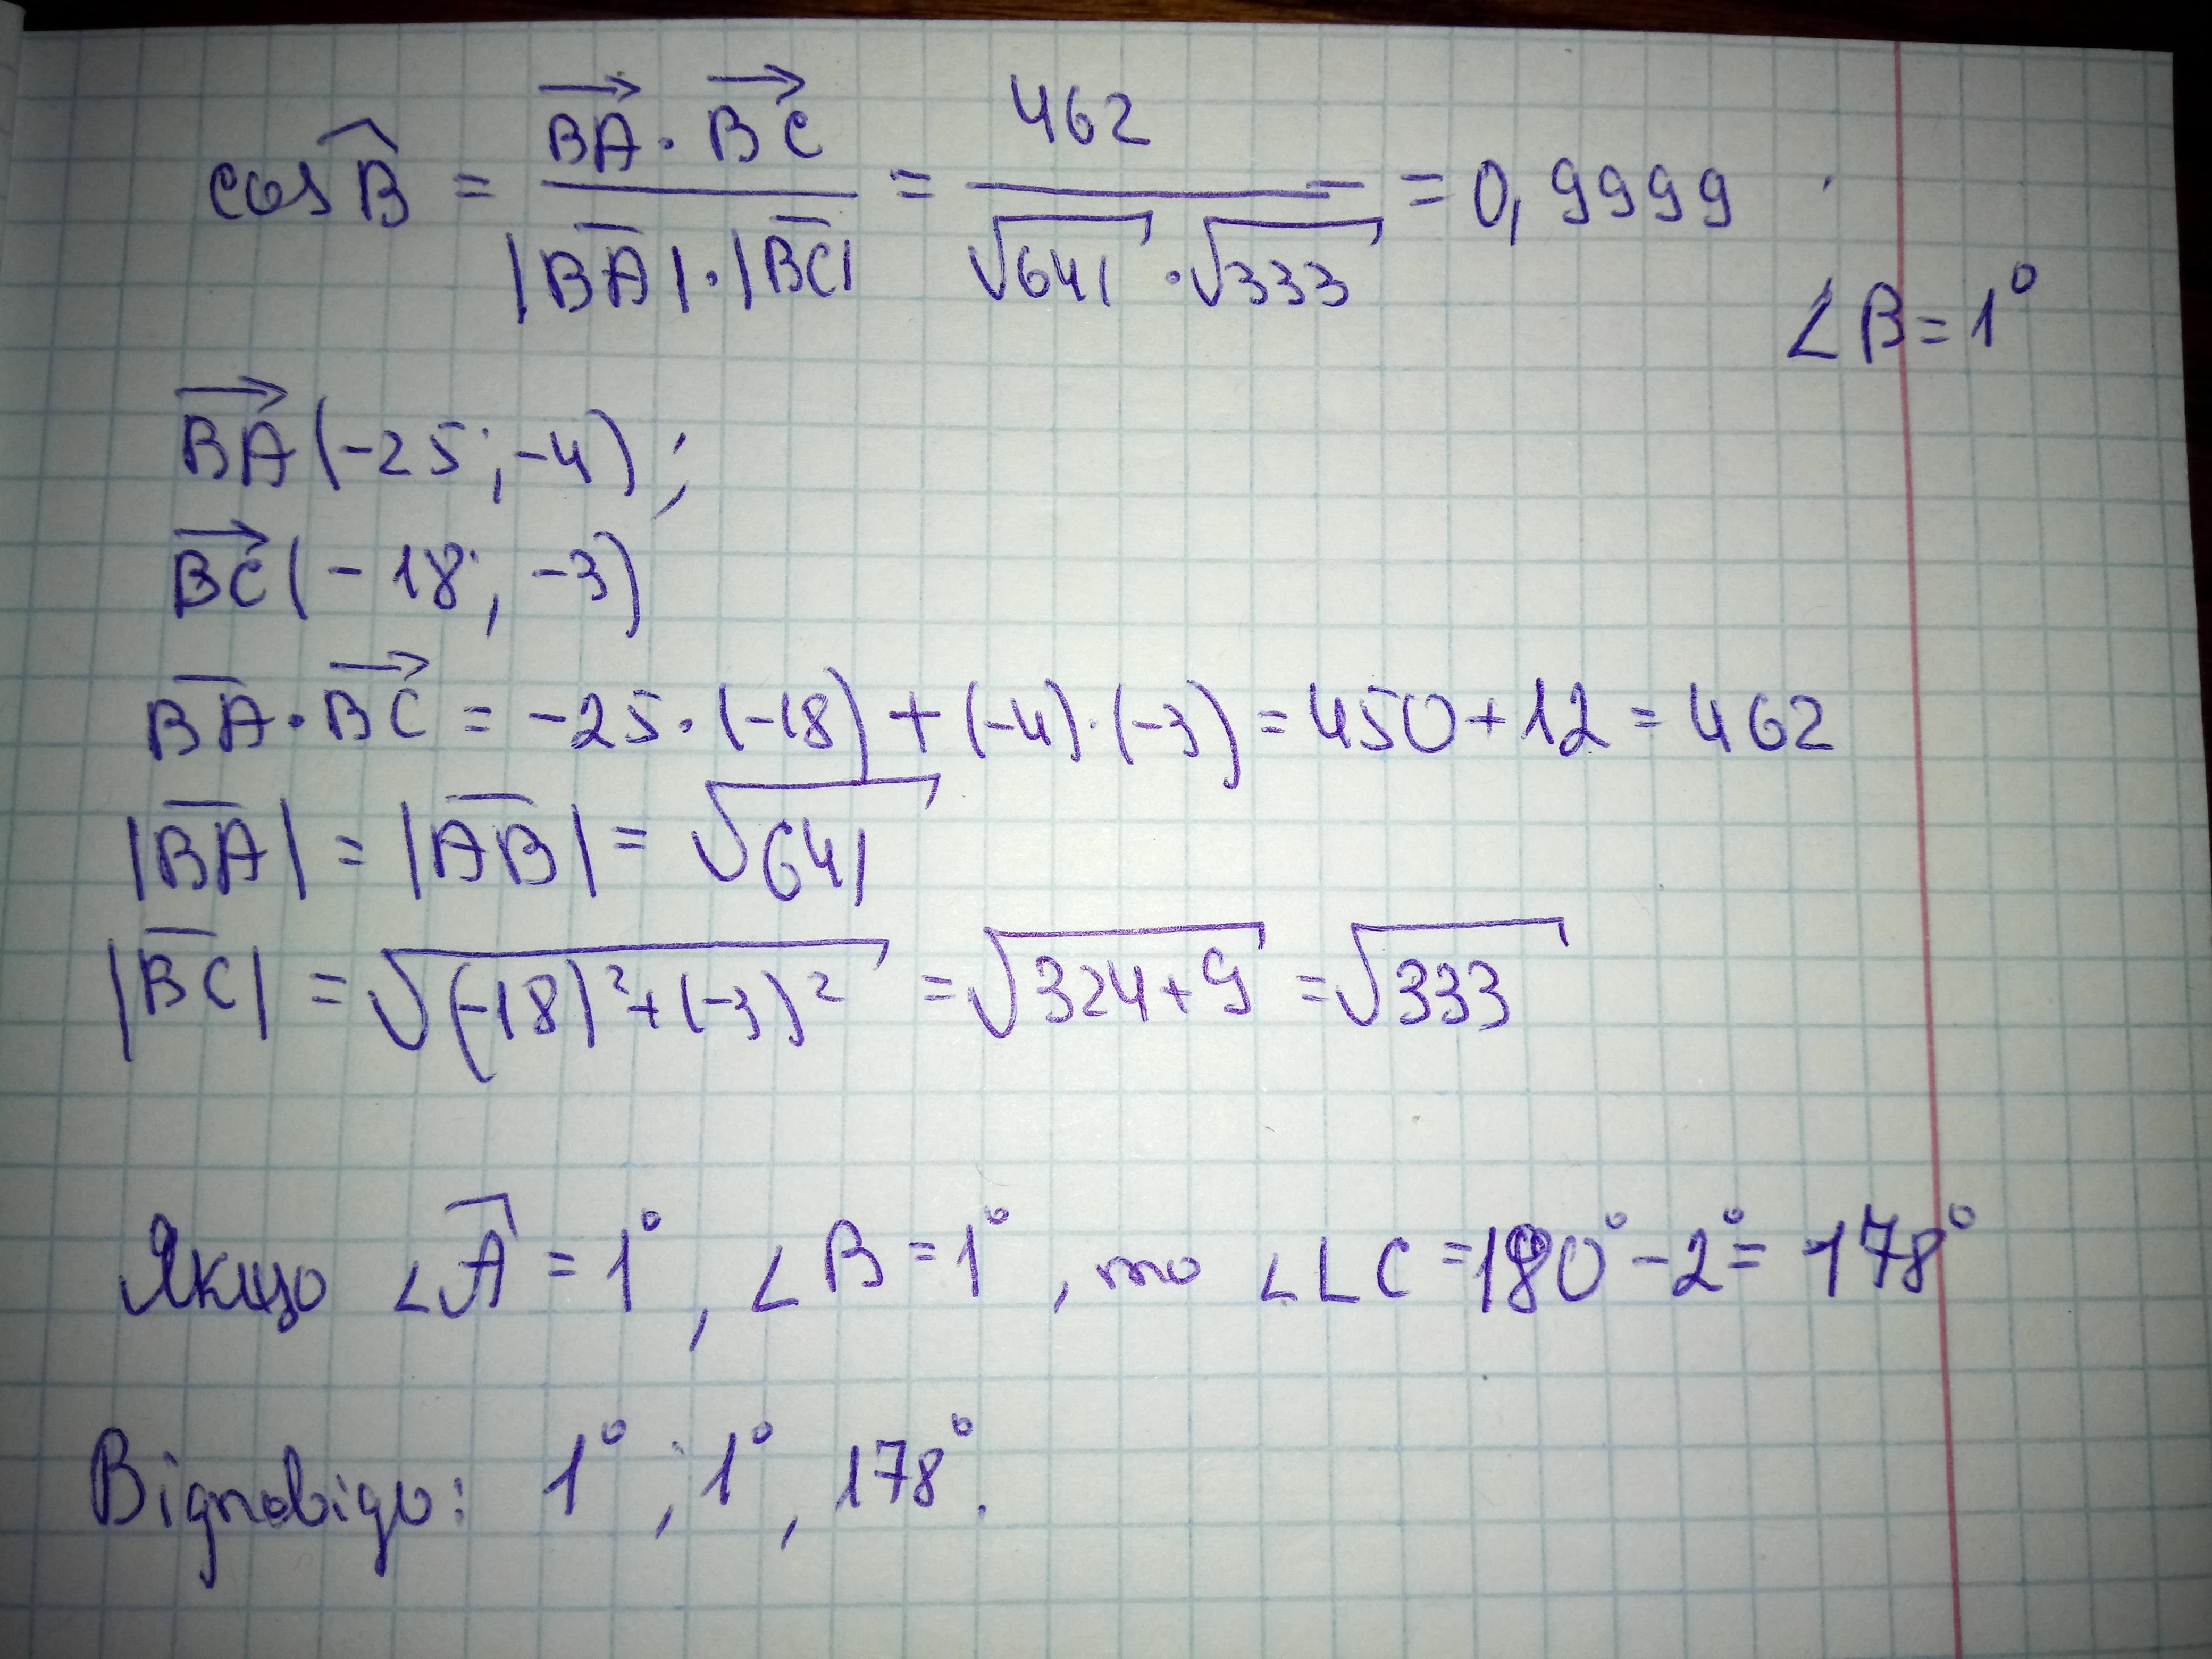 cos B̂ = (B͞A⃗ · B͞C⃗) / (|B͞A| · |B͞C|) = 462 / (√641 · √333) = 0,9999
∠B = 1°
B͞A⃗ (-25; -4);
B͞C⃗ (-18; -3)
B͞A · B͞C⃗ = -25 · (-18) + (-4) · (-3) = 450 + 12 = 462
|B͞A| = |A͞B| = √641
|B͞C| = √((-18)² + (-3)²) = √(324 + 9) = √333
Якщо ∠Â = 1°, ∠B = 1°, то ∠∠C = 180° - 2° = 178°
Відповідь: 1°, 1°, 178°.